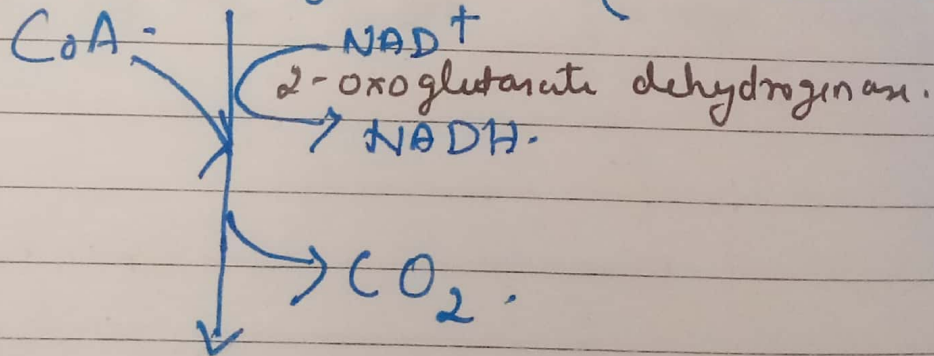 CoA:
NAD+
2-oxoglutarate dehydrogenase.
NADH.
CO2.